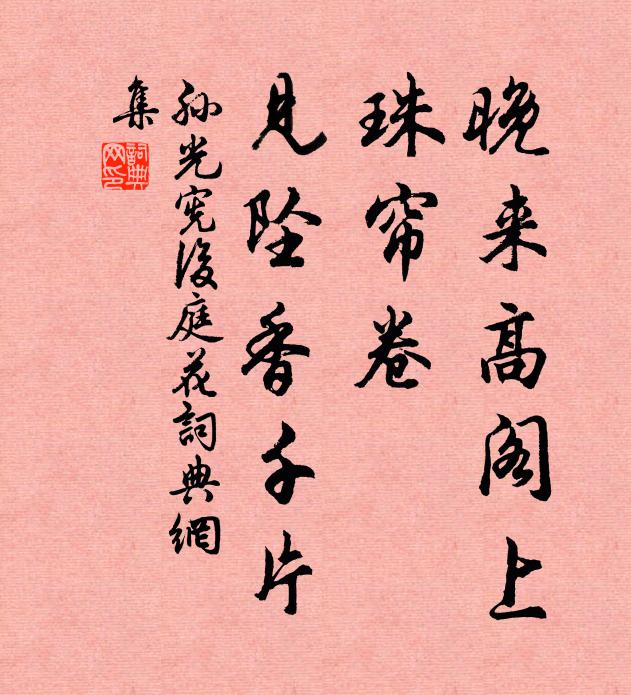 晚来高阁上
珠帘卷
见坠香千片
孙光宪後庭花詞典網
集
詞典網印